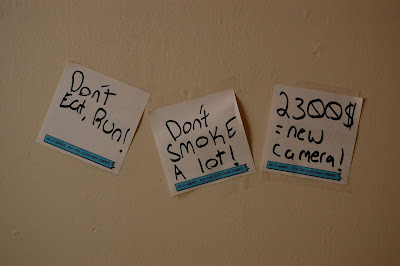 Don't
Eat, Run!
Don't
SMOKE
A lot!
2300$
=new
camera!